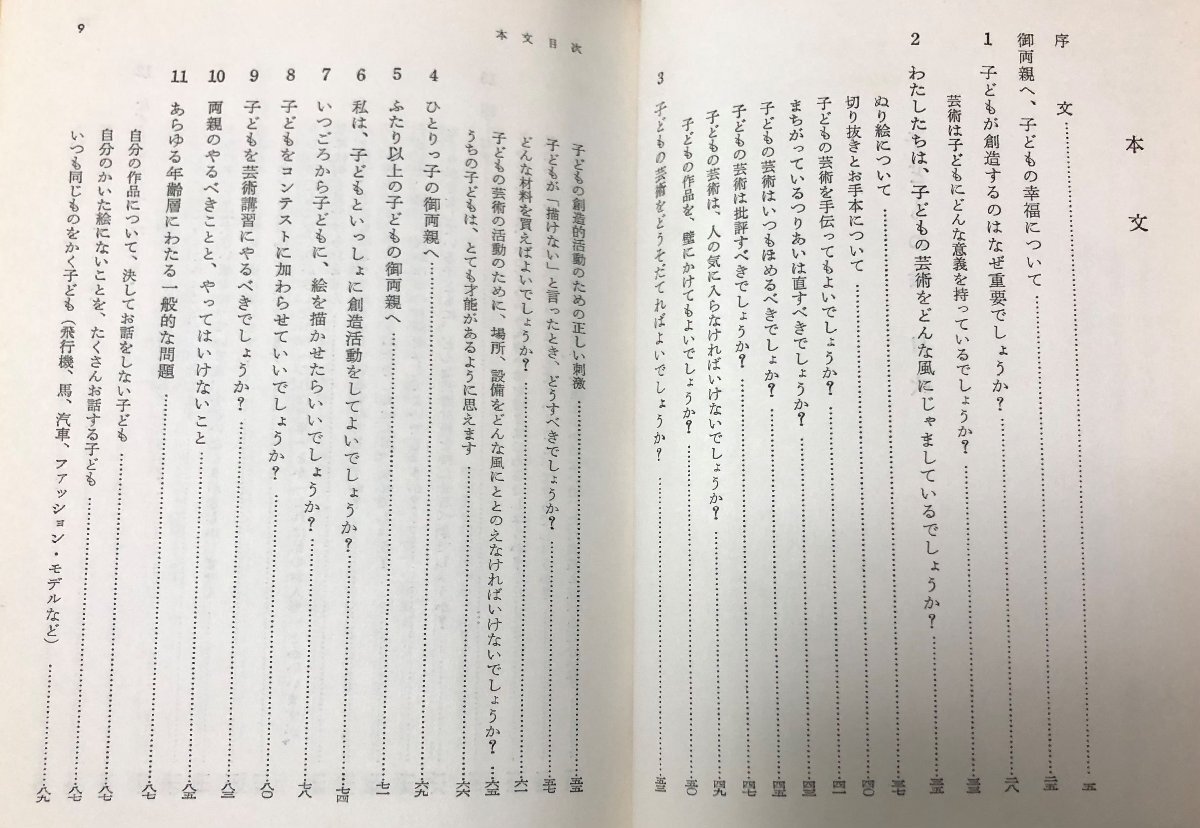 本文
序文……五
御両親へ、子どもの幸福について……二五
1 子どもが創造するのはなぜ重要でしょうか?……二八
芸術は子どもにどんな意義を持っているでしょうか?……三三
2 わたしたちは、子どもの芸術をどんな風にじゃましているでしょうか?……三五
ぬり絵について……三七
切り抜きとお手本について……四〇
子どもの芸術を手伝ってもよいでしょうか?……四一
まちがっているつりあいは直すべきでしょうか?……四三
子どもの芸術はいつもほめるべきでしょうか?……四五
子どもの芸術は批評すべきでしょうか?……四七
子どもの芸術は、人の気に入らなければいけないでしょうか?……四九
子どもの作品を、壁にかけてもよいでしょうか?……五〇
3 子どもの芸術をどうそだてればよいでしょうか?……五三
本文目次
9
子どもの創造的活動のための正しい刺激……五五
子どもが「描けない」と言ったとき、どうすべきでしょうか?……五七
どんな材料を買えばよいでしょうか?……六一
子どもの芸術の活動のために、場所、設備をどんな風にととのえなければいけないでしょうか?……六五
うちの子どもは、とても才能があるように思えます……六六
4 ひとりっ子の御両親へ……六九
5 ふたり以上の子どもの御両親へ……七一
6 私は、子どもといっしょに創造活動をしてよいでしょうか?……七四
7 いつごろから子どもに、絵を描かせたらいいでしょうか?……七八
8 子どもをコンテストに加わらせていいでしょうか?……八〇
9 子どもを芸術講習にやるべきでしょうか?……八三
10 両親のやるべきことと、やってはいけないこと……八五
11 あらゆる年齢層にわたる一般的な問題……八七
自分の作品について、決してお話をしない子ども……八七
自分のかいた絵にないことを、たくさんお話する子ども……八七
いつも同じものをかく子ども(飛行機、馬、汽車、ファッション・モデルなど)……八九